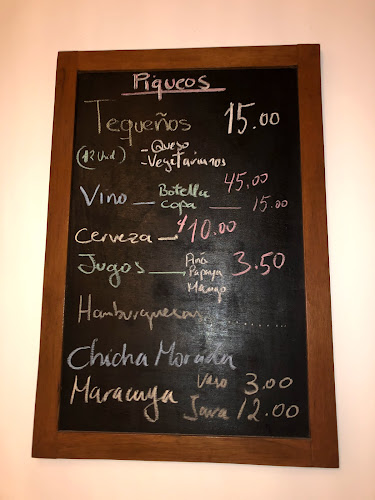 Piqueos
Tequeños 15.00
(12 Und.) - Queso
- Vegetarianos
Vino — Botella 45.00
Copa — 15.00
Cerveza — 10.00
Jugos — Piña 3.50
Papaya
Mango
Hamburguesas ..........
Chicha Morada
Maracuya Vaso 3.00
Jarra 12.00